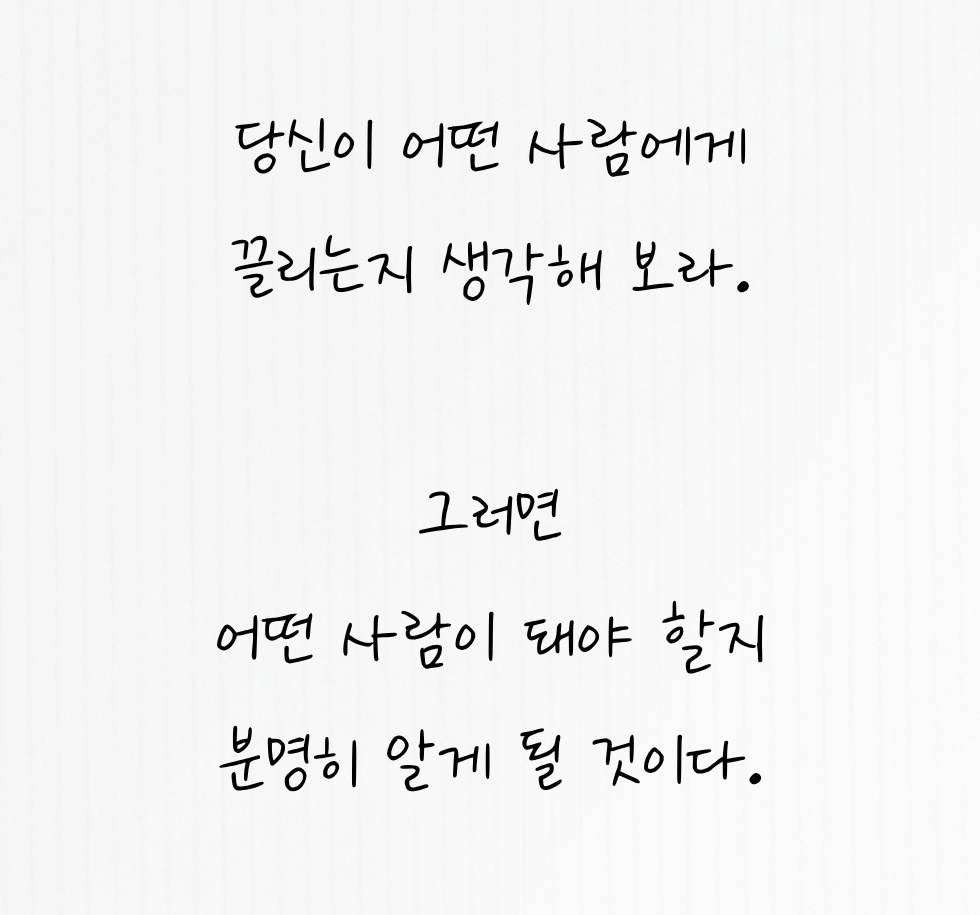 당신이 어떤 사람에게
끌리는지 생각해 보라.
그러면
어떤 사람이 돼야 할지
분명히 알게 될 것이다.